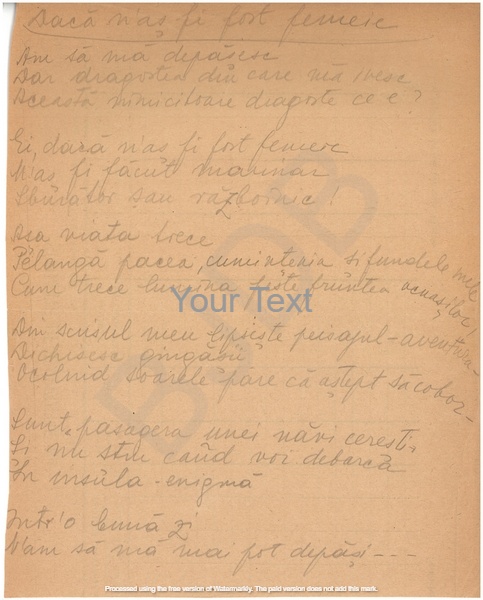 Dacă n'as fi fost femeie
Am să mă depăsesc
Dar dragostea din care mă ivesc
Această nimicitoare dragoste ce e?
Ei, dacă n'as fi fost femeie
M'as fi făcut marinar
Sburător sau războinic!
Asa viata trece
Pe lângă pacea, cumintenia si fundele mele
Cum trece lumina peste fruntea ocnașilor,
Din scrisul meu lipseste peisajul-aventura-
Dichisesc gingășii
Ocolind soarele pare că aștept să cobor-
Sunt pasagera unei năvi ceresti,
Si nu stiu cand voi debarca
În insula-enigmă
Intr'o bună zi
N'am să mă mai pot depăși---
BCOB
Your Text
Processed using the free version of Watermarkly. The paid version does not add this mark.